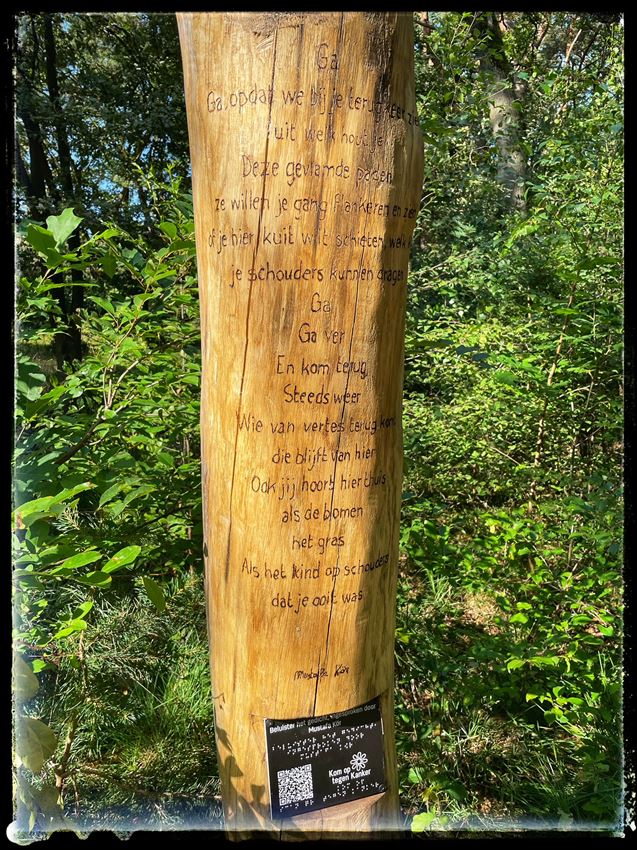 Ga
Ga, opdat we bij je terugkeer zien
uit welk hout je
Deze gevlamde palen
ze willen je gang flankeren en zien
of je hier kuit wilt schieten, welk
je schouders kunnen dragen
Ga
Ga ver
En kom terug
Steeds weer
Wie van vertes terug komt
die blijft van hier
Ook jij hoort hier thuis
als de bomen
het gras
Als het kind op schouders
dat je ooit was
Mustafa Kör
Beluister het gedicht, ingesproken door
Mustafa Kör
Kom op
tegen Kanker